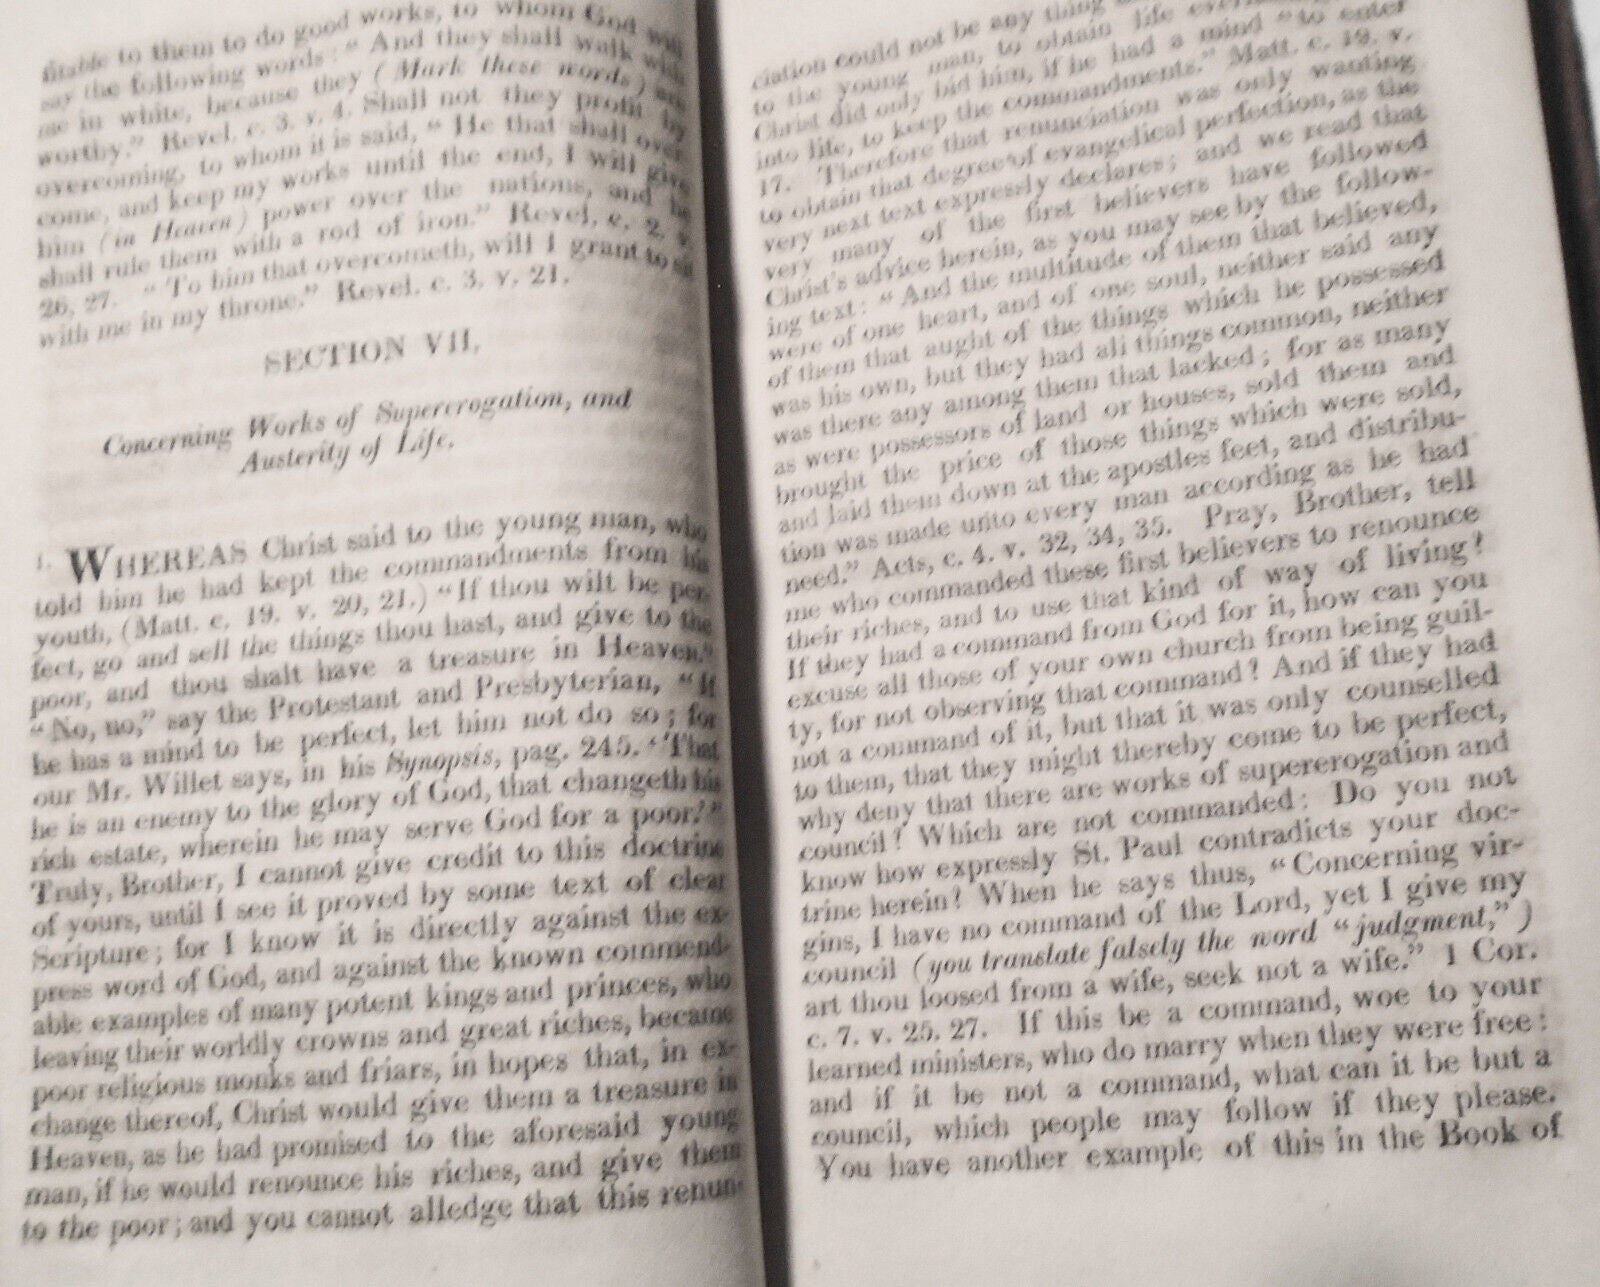 fitable to them to do good works, to whom God will
say the following words: "And they shall walk with
me in white, because they (Mark these words) are
worthy." Revel. c. 3. v. 4. Shall not they profit by
overcoming, to whom it is said, "He that shall over
come, and keep my works until the end, I will give
him (in Heaven) power over the nations, and he
shall rule them with a rod of iron." Revel. c. 2. v.
26, 27. "To him that overcometh, will I grant to sit
with me in my throne." Revel. c. 3. v. 21.
SECTION VII.
Concerning Works of Supererogation, and
Austerity of Life.
1. WHEREAS Christ said to the young man, who
told him he had kept the commandments from his
youth, (Matt. c. 19. v. 20, 21.) "If thou wilt be per-
fect, go and sell the things thou hast, and give to the
poor, and thou shalt have a treasure in Heaven."
"No, no," say the Protestant and Presbyterian, "If
he has a mind to be perfect, let him not do so; for
our Mr. Willet says, in his Synopsis, pag. 245. 'That
he is an enemy to the glory of God, that changeth his
rich estate, wherein he may serve God for a poor.'"
Truly, Brother, I cannot give credit to this doctrine
of yours, until I see it proved by some text of clear
Scripture; for I know it is directly against the ex-
press word of God, and against the known commend-
able examples of many potent kings and princes, who
leaving their worldly crowns and great riches, became
poor religious monks and friars, in hopes that, in ex-
change thereof, Christ would give them a treasure in
Heaven, as he had promised to the aforesaid young
man, if he would renounce his riches, and give them
to the poor; and you cannot alledge that this renun-
ciation could not be any thing
to the young man, to obtain life
Christ did only bid him, if he had a mind "to enter
into life, to keep the commandments." Matt. c. 19. v.
17. Therefore that renunciation was only wanting
to obtain that degree of evangelical perfection, as the
very next text expressly declares; and we read that
very many of the first believers have followed
Christ's advice herein, as you may see by the follow-
ing text: "And the multitude of them that believed,
were of one heart, and of one soul, neither said any
of them that aught of the things which he possessed
was his own, but they had all things common, neither
was there any among them that lacked; for as many
as were possessors of land or houses, sold them and
brought the price of those things which were sold,
and laid them down at the apostles feet, and distribu-
tion was made unto every man according as he had
need." Acts, c. 4. v. 32, 34, 35. Pray, Brother, tell
me who commanded these first believers to renounce
their riches, and to use that kind of way of living?
If they had a command from God for it, how can you
excuse all those of your own church from being guil-
ty, for not observing that command? And if they had
not a command of it, but that it was only counselled
to them, that they might thereby come to be perfect,
why deny that there are works of supererogation and
council? Which are not commanded: Do you not
know how expressly St. Paul contradicts your doc-
trine herein? When he says thus, "Concerning vir-
gins, I have no command of the Lord, yet I give my
council (you translate falsely the word "judgment,")
art thou loosed from a wife, seek not a wife." 1 Cor.
c. 7. v. 25. 27. If this be a command, woe to your
learned ministers, who do marry when they were free:
and if it be not a command, what can it be but a
council, which people may follow if they please.
You have another example of this in the Book of